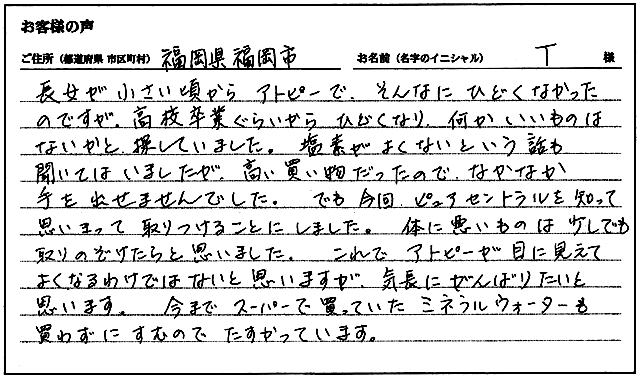 お客様の声
ご住所（都道府県 市区町村） 福岡県福岡市 お名前（名字のイニシャル） T 様
長女が小さい頃からアトピーで、そんなにひどくなかった
のですが、高校卒業ぐらいからひどくなり、何かいいものは
ないかと、探していました。塩素がよくないという話も
聞いてはいましたが、高い買い物だったので、なかなか
手を出せませんでした。でも今回、ピュアセントラルを知って
思いきって取りつけることにしました。体に悪いものは少しでも
取りのぞけたらと思いました。これでアトピーが目に見えて
よくなるわけではないと思いますが、気長にがんばりたいと
思います。今までスーパーで買っていたミネラルウォーターも
買わずにすむのでたすかっています。